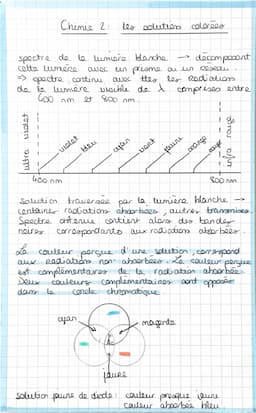 Chimie 2: les solutions colorées
spectre de la lumière blanche → décomposant
cette lumière avec un prisme ou un réseau.
⇒ spectre continu avec ttes les radiations
de la lumière visible de λ comprises entre
400 nm et 800 nm.
ultra violet
violet
bleu
cyan
vert
jaune
orange
rouge
infra rouge
400 nm
800 nm
Solution traversée par la lumière blanche →
certaines radiations absorbées, autres transmises.
Spectre obtenu contient alors des bandes
noires correspondants aux radiations absorbées.
La couleur perçue d'une solution, correspond
aux radiations non-absorbées. La couleur perçue
est complémentaires de la radiation absorbée.
Deux couleurs complémentaires sont opposés
dans le cercle chromatique.
cyan
magenta
jaune
solution jaune de diode: couleur perçue jaune
couleur absorbée bleu